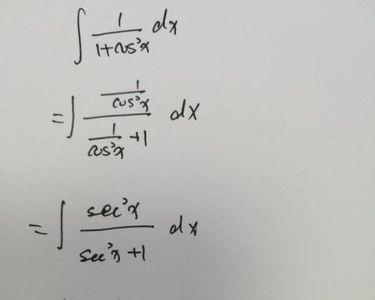 ∫ 1/(1+cos²x) dx
= ∫ (1/cos²x)/(1/cos²x + 1) dx
= ∫ sec²x/(sec²x + 1) dx